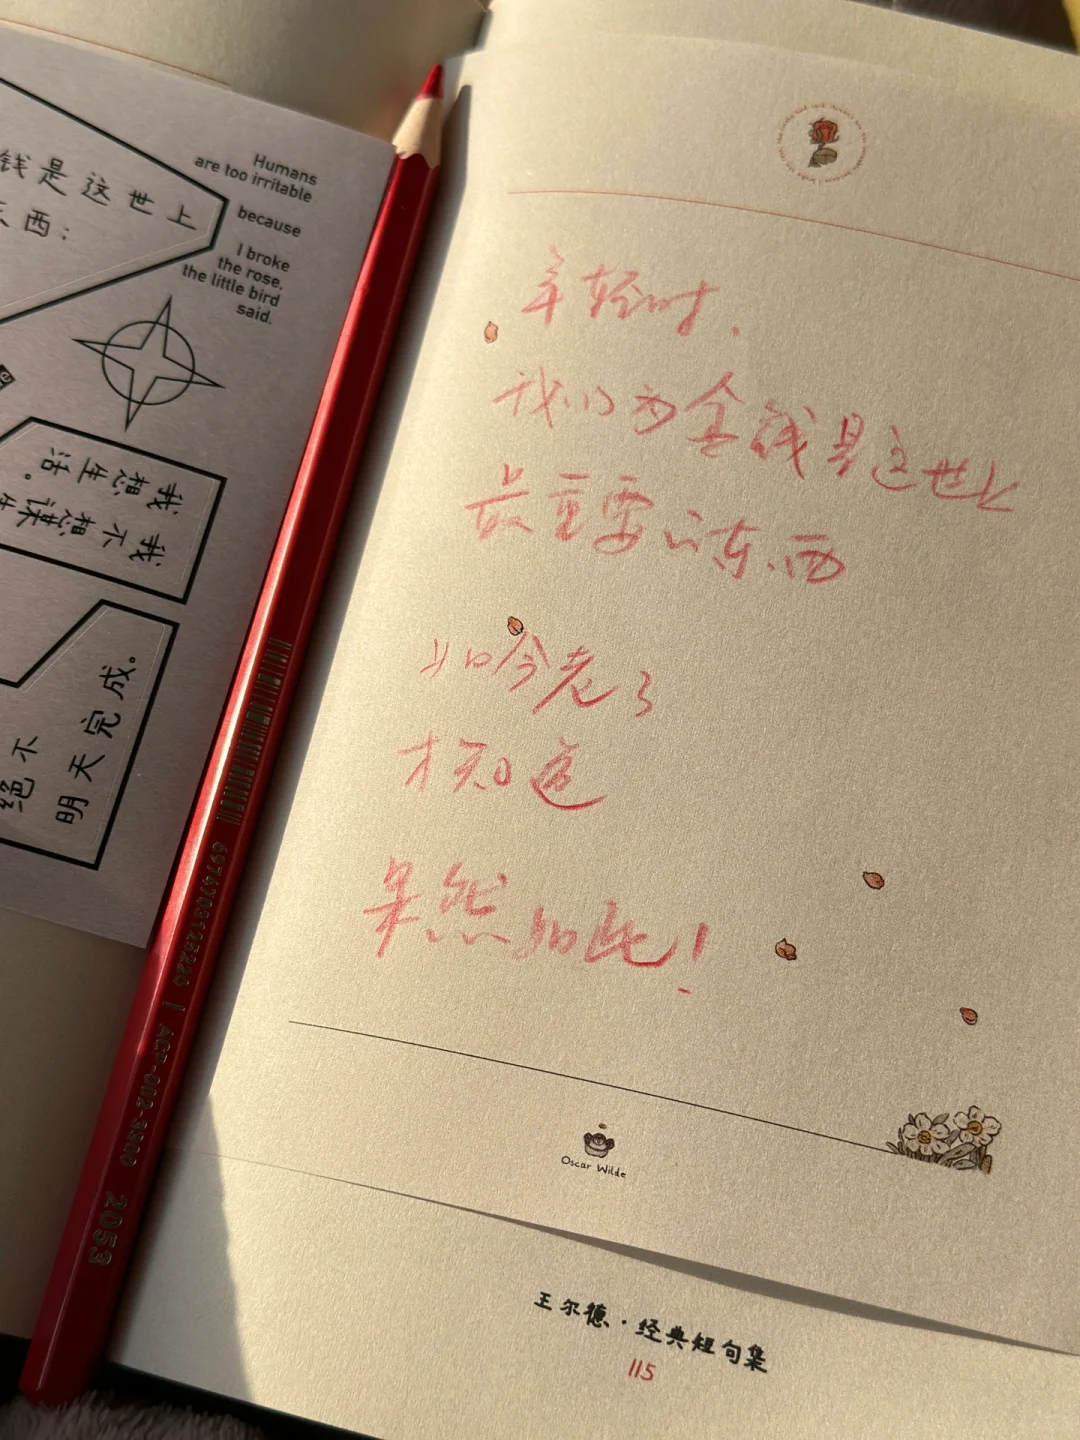 钱是这世上
西：
Humans
are too irritable
because
I broke
the rose,
the little bird
said.
我想生活。
我不想谋生
绝不
明天完成。
6974703125226 | ACP-002-3300 2053
年轻时，
我们为金钱是这世上
最重要的东西
如今老了
才知道
果然如此！
Oscar Wilde
王尔德·经典短句集
115